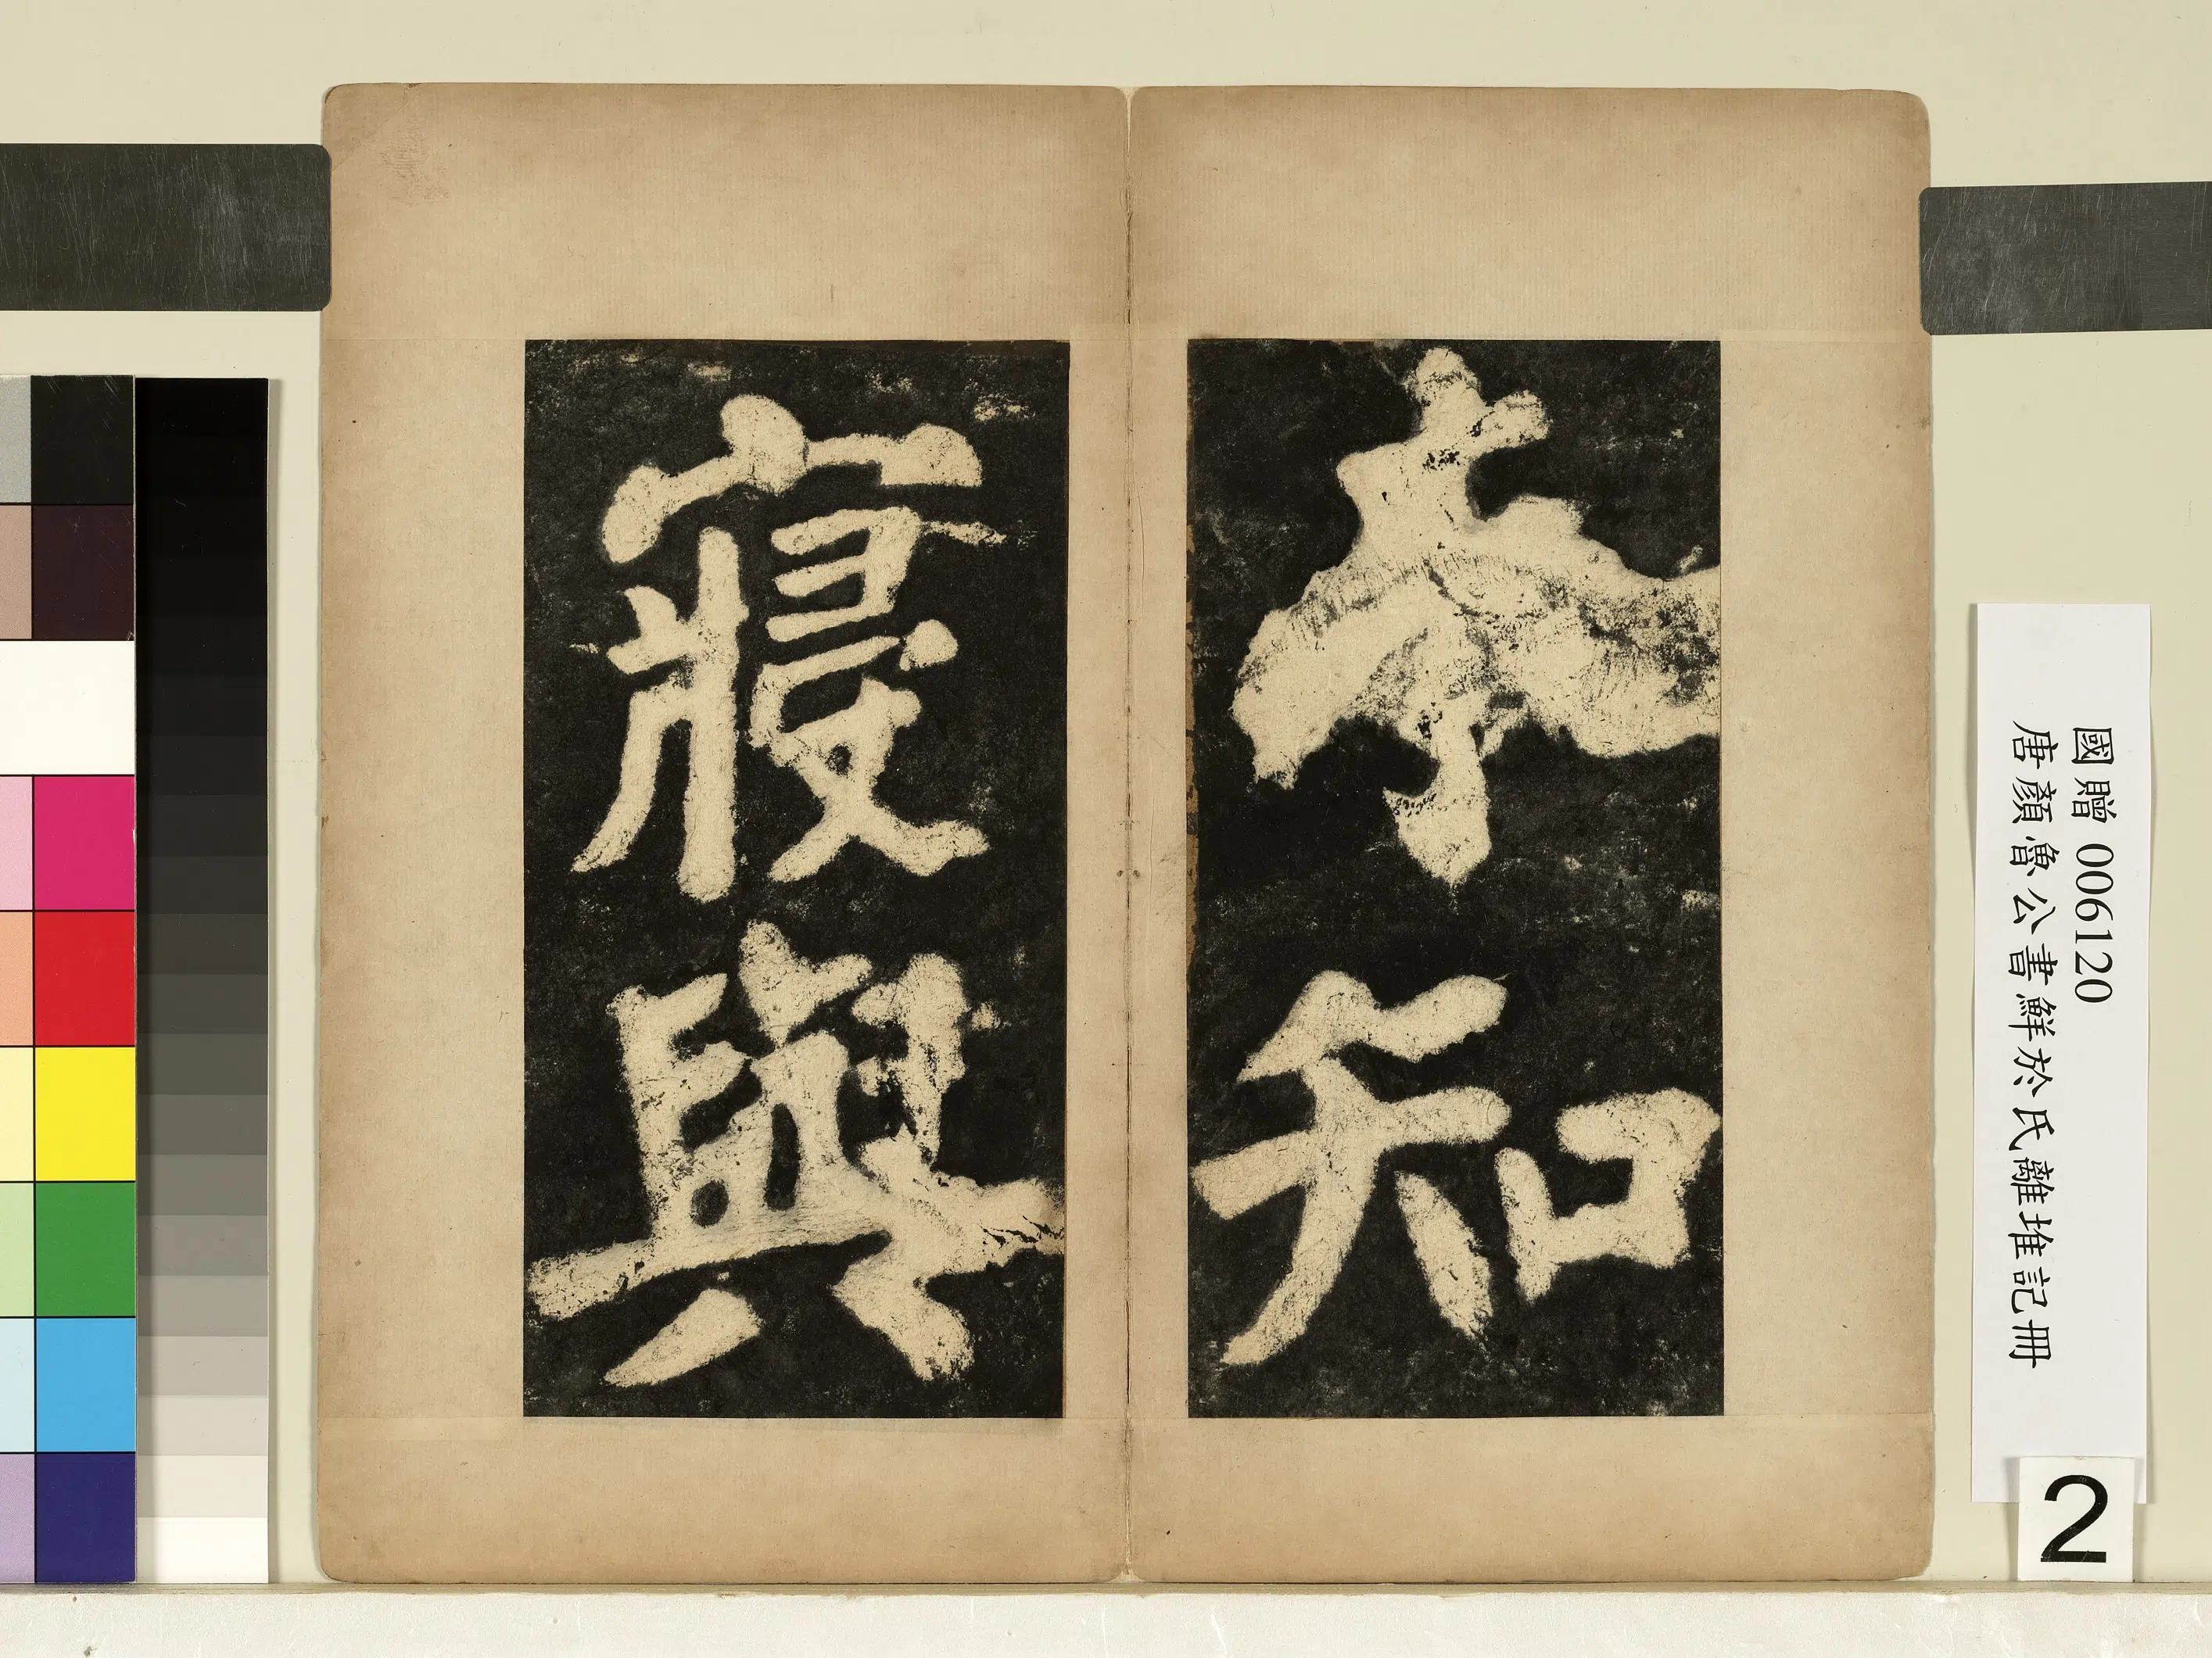 知
寢與
國贈 006120
唐顏魯公書鮮於氏離堆記冊
2